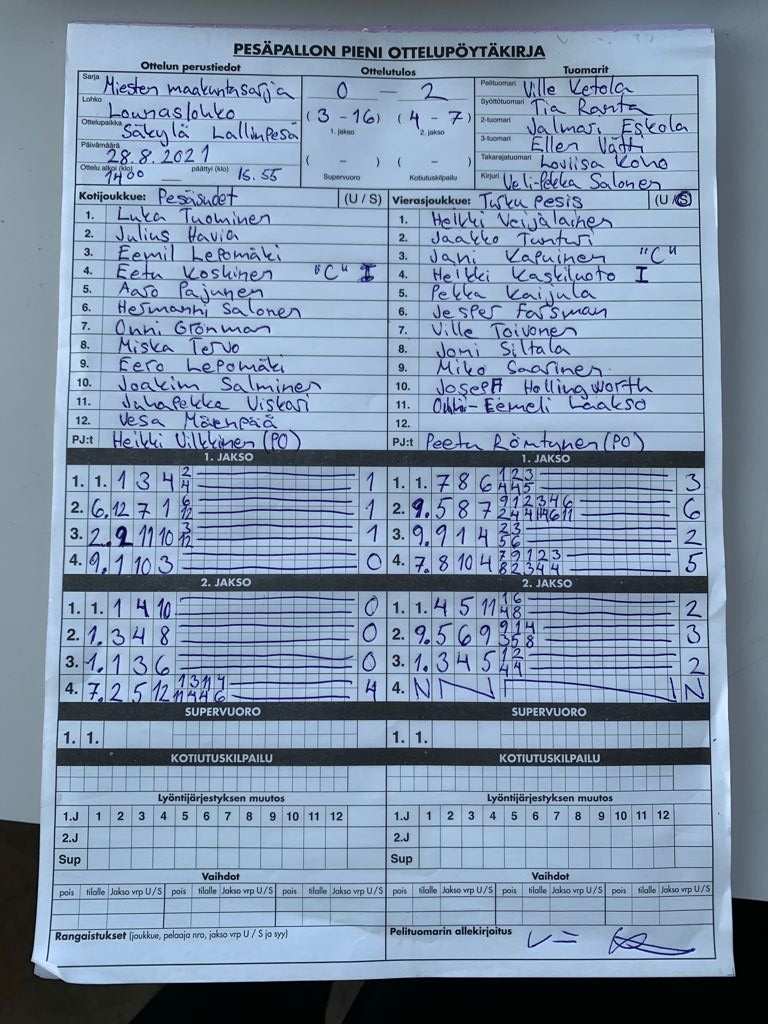 PESÄPALLON PIENI OTTELUPÖYTÄKIRJA
Ottelun perustiedot
Ottelutulos
Tuomarit
Sarja Miesten maakuntasarja
Lohko Lounaslohko
Ottelupaikka Säkylä Lallinpesä
Päivämäärä 28.8.2021
Ottelu alkoi (klo) 1400 päättyi (klo) 15.55
0 – 2
(3 - 16) (4 - 7)
1. jakso 2. jakso
( - ) ( - )
Supervuoro Kotiutuskilpailu
Pelituomari Ville Ketola
Syöttötuomari Tia Ranta
2-tuomari Jalmari Eskola
3-tuomari Ellen Vätti
Takarajatuomari Loviisa Koho
Kirjuri Veli-Pekka Salonen
Kotijoukkue: Pesäsudet (U / S)
1. Luka Tuominen
2. Julius Havia
3. Eemil Lepomäki
4. Eetu Koskinen "C" I
5. Aaro Pajunen
6. Hermanni Salonen
7. Onni Grönman
8. Miska Tervo
9. Eero Lepomäki
10. Joakim Salminen
11. Juhapekka Viskari
12. Vesa Mäenpää
PJ:t Heikki Vilkkinen (PO)
Vierasjoukkue: Turku pesis (U / S)
1. Heikki Veijalainen
2. Jaakko Tunturi
3. Jani Kapuinen "C"
4. Heikki Kaskiluoto I
5. Pekka Kaijula
6. Jesper Forsman
7. Ville Toivonen
8. Joni Siltala
9. Miko Saarinen
10. Joseph Hollingworth
11. Onni-Eemeli Laakso
12.
PJ:t Peetu Röntynen (PO)
1. JAKSO
1. 1. 1 3 4 2 4 1
2. 6. 12 7 1 6 12 1
3. 2. 9 11 10 3 12 1
4. 9. 1 10 3 0
2. JAKSO
1. 1. 1 4 10 0
2. 1. 3 4 8 0
3. 1. 1 3 6 0
4. 7. 2 5 12 1 3 11 4 11 4 4 6 4
1. JAKSO
1. 1. 7 8 6 1 2 3 4 4 5 3
2. 9. 5 8 7 9 1 2 3 4 6 2 4 4 6 11 6
3. 9. 9 1 4 2 3 5 6 2
4. 7. 8 10 4 7 9 1 2 3 8 2 3 4 4 5
2. JAKSO
1. 1. 4 5 11 1 6 4 8 2
2. 9. 5 6 9 9 1 4 3 5 8 3
3. 1. 3 4 5 1 2 4 4 2
4. N N N
SUPERVUORO
1. 1.
SUPERVUORO
1. 1.
KOTIUTUSKILPAILU
KOTIUTUSKILPAILU
Lyöntijärjestyksen muutos
1.J 1 2 3 4 5 6 7 8 9 10 11 12
2.J
Sup
Lyöntijärjestyksen muutos
1.J 1 2 3 4 5 6 7 8 9 10 11 12
2.J
Sup
Vaihdot
pois tilalle Jakso vrp U / S pois tilalle Jakso vrp U / S pois tilalle Jakso vrp U / S
Vaihdot
pois tilalle Jakso vrp U / S pois tilalle Jakso vrp U / S pois tilalle Jakso vrp U / S
Rangaistukset (joukkue, pelaaja nro, jakso vrp U / S ja syy)
Pelituomarin allekirjoitus